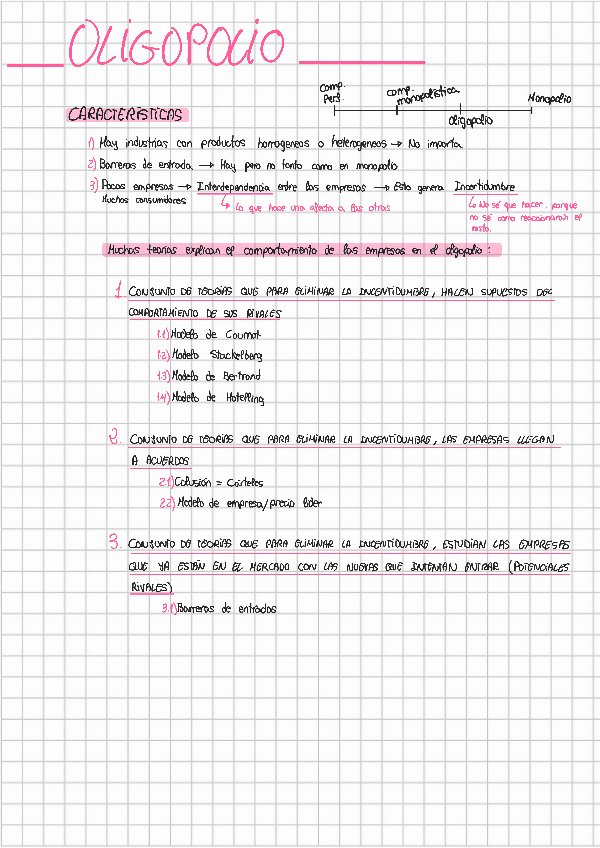 OLIGOPOLIO
Comp. Perf.
comp. monopolística
oligopolio
Monopolio
CARACTERÍSTICAS
1) Hay industrias con productos homogeneos o heterogeneos → No importa
2) Barreras de entrada → Hay pero no tanto como en monopolio
3) Pocas empresas → Interdependencia entre las empresas → Esto genera Incertidumbre
Muchos consumidores
↳ Lo que hace una afecta a las otras
↳ No sé que hacer, porque
no sé como reaccionarán el
resto.
Muchas teorías explican el comportamiento de las empresas en el oligopolio:
1. CONJUNTO DE TEORÍAS QUE PARA ELIMINAR LA INCERTIDUMBRE, HACEN SUPUESTOS DEL
COMPORTAMIENTO DE SUS RIVALES
1.1) Modelo de Cournot
1.2) Modelo Stackelberg
1.3) Modelo de Bertrand
1.4) Modelo de Hotelling
2. CONJUNTO DE TEORÍAS QUE PARA ELIMINAR LA INCERTIDUMBRE, LAS EMPRESAS LLEGAN
A ACUERDOS
2.1) Colusión = Cárteles
2.2) Modelo de empresa/precio líder
3. CONJUNTO DE TEORÍAS QUE PARA ELIMINAR LA INCERTIDUMBRE, ESTUDIAN LAS EMPRESAS
QUE YA ESTÁN EN EL MERCADO CON LAS NUEVAS QUE INTENTAN ENTRAR (POTENCIALES
RIVALES)
3.1) Barreras de entradas